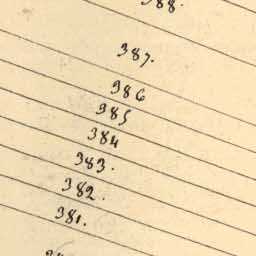 388.
387.
386
385
384
383.
382.
381.